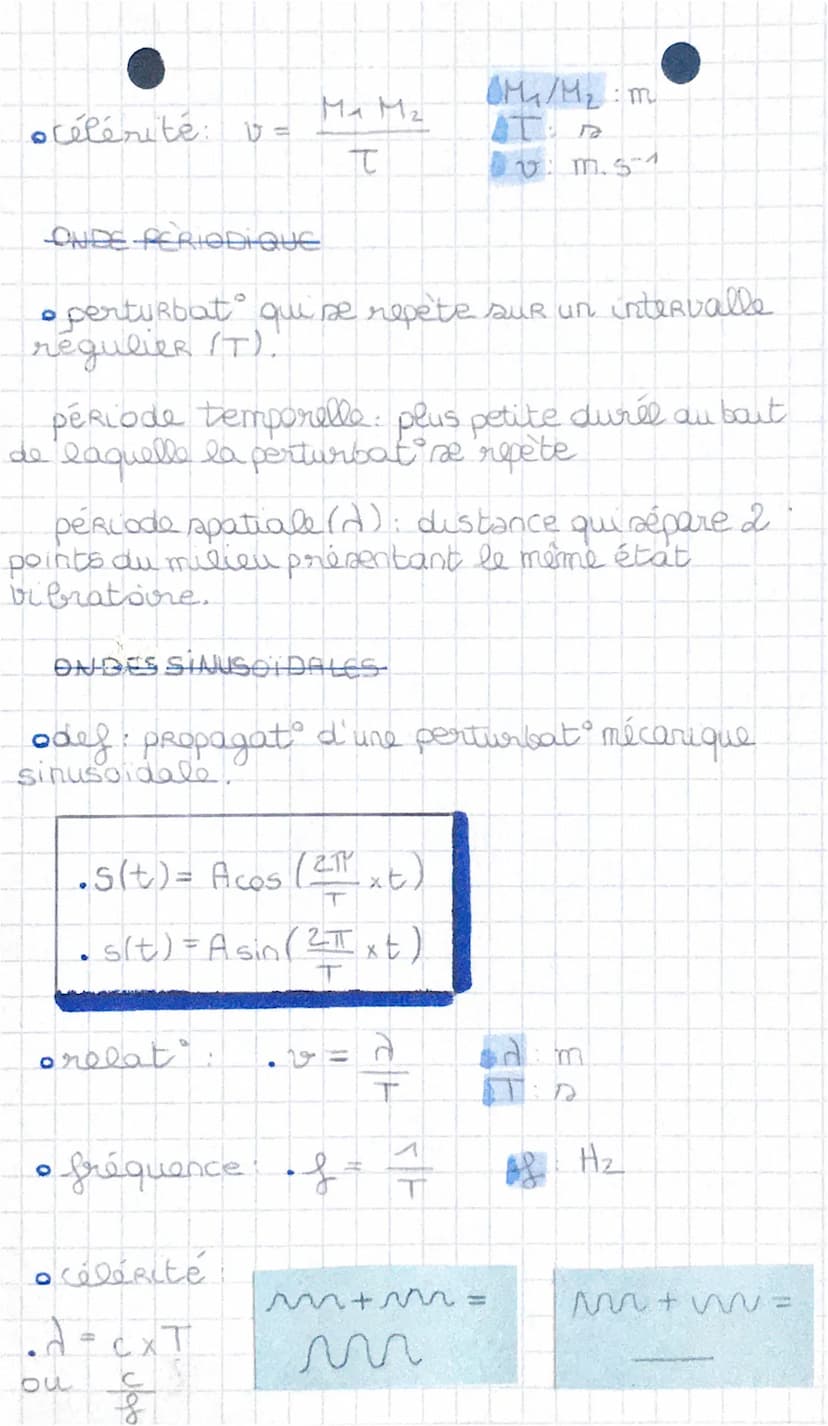 célérité: v = M₁M₂/τ
M₁/M₂ : m
T : s
v : m.s⁻¹
ONDE PÈRIODIQUE
perturbat° qui se repète sur un intervalle
régulier (T).
période temporelle: plus petite durée au bout
de laquelle la perturbat° se repète
période spatiale (λ) : distance qui sépare 2
points du milieu présentant le même état
vibratoire.
ONDES SINUSOÏDALES
def : propagat° d'une perturbat° mécanique
sinusoïdale.
. s(t) = A cos (2π/T × t)
. s(t) = A sin (2π/T × t)
relat° : . v = λ/T
λ : m
T : s
fréquence : . f = 1/T
f : Hz
célérité :
. λ = c × T
ou c/f
+ =
+ =